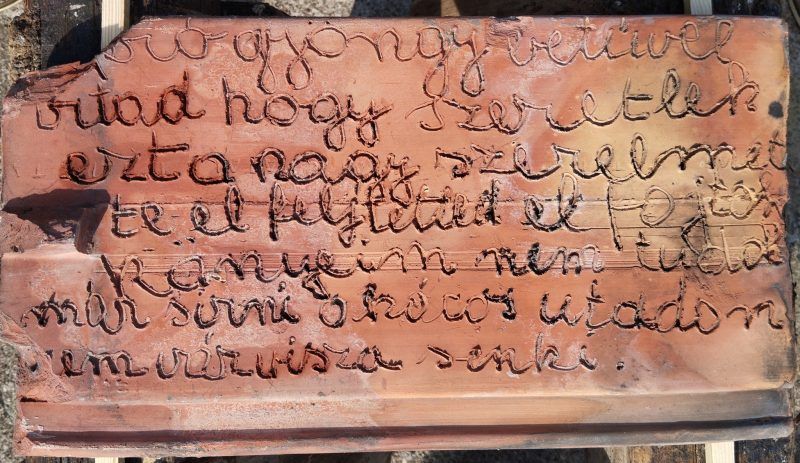 gyöngy betűvel
írtad hogy szeretlek
ezt a nagy szerelmet
te el felejtetted el fojtot
könyeim nem tudok
már sirni a kócos utadon
nem vár visza senki.